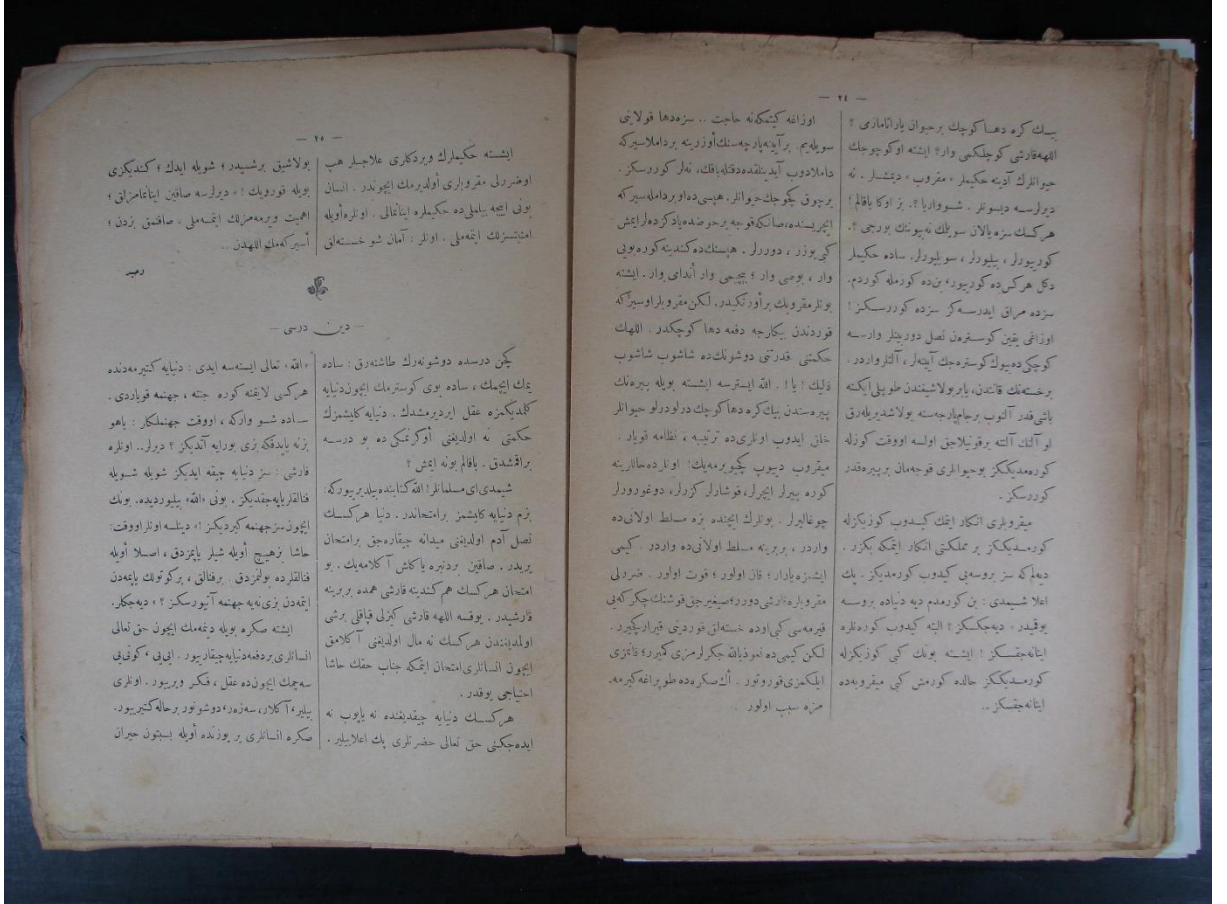 — ٢٤ —
بیك كره دها كوچك بر حیوان یاراتامازمی ؟
اللهه قارشی كوجلكمی وار؟ ایشته او كوچوجك
حیوانلرك آدینه حكیملر «مقروب» دیمشلر . نه
دیرلرسه دیسونلر . شو واریا ؟. بز اوكا باقالم !
هركسك سزه یالان سویلمك نه بیوننك بورجی ؟.
كوریبورلر ، بیلیورلر ، سویلیورلر. ساده حكیملر
دكل هركس ده كوریبور، بن ده كورمله كوردم.
سزده مراق ایدرسه كز سزده كوررسكز !
اوزاغی یقین كوسترن نصل دوربینلر وارسه
كوچكی ده بیوك كوستره جك آینه لر ، آلتلر واردر .
برخسته نك قانندن، یابر بولاشیغندن طوپلی ایكنه
باشی قدر آلنوب برجام پارچه سنه بولاشدیریله رق
او آلتك آلتنه برقونیلاجق اولسه اووقت كوزله
كوره مدیككز بوحیوانلری قوجه مان بر پیره قدر
كوررسكز .
میقروبلری انكار ایتمك كیدوب كوزیكزله
كورمدیككز بر مملكتی انكار ایتمكه بكزر .
دیه لم كه سز بروسه یی كیدوب كورمدیكز . پك
اعلا شیمدی : بن كورمدم دیه دنیاده بروسه
یوقمیدر » دیه جكسكز ! البته كیدوب كورەنلره
اینانه جقسكز ! ایشته بونك كبی كوزیكزله
كورمدیككز حالده كورمش كبی میقروبه ده
اینانه جقسكز ..
اوزاغه كیتمكه نه حاجت .. سزه دها قولاینی
سویله یم. بر آینه پارچه سنك أوزرینه برداملا سیركه
داملادوب آیدینلقده دقتله باقك، نه لر كوررسكز .
برچوق كچوجك حیوانلر. هپسی ده اوبردامله سیر كه
ایچریسنده، صانكه قوجه برحوضده یاد كزده لر ایمش
كبی یوزر ، دوررلر . هپسنك ده كندینه كوره بویی
وار ، بوصی وار ؛ بیچیمی وار أندامی وار . ایشته
بونلر مقروبك بر أورنكیدر. لكن مقروبلر اوسیر كه
قوردندن بیكلرجه دفعه دها كوچكدر . اللهك
حكمتنی قدرتنی دوشونك ده شاشوب شاشوب
قالك ! یا ! . الله ایسترسه ایشته بویله پیره نك
پیره سندن بیك كره دها كوچك درلو درلو حیوانلر
خلق ایدوب اونلری ده ترتیبه ، نظامه قویار .
میقروب دییوب كچیویرمه یك! اونلرده حاللرینه
كوره ییرلر ایچرلر، قوشارلر كزرلر، دوغورورلر
چوغالیرلر . بونلرك ایچنده بزه مسلط اولانی ده
واردر ، بربرینه مسلط اولانی ده واردر . كیمی
ایشمزه یارار ؛ قان اولور ؛ قوت اولور . ضررلی
مقروبلره قارشی دورر؛ صیغیرجق قوشنك چكر كه یی
قیرمه سی كبی اوده خسته لق قوردینی قیرار كچیرر .
لكن كیمی ده نعوذ بالله جكرلرمزی كمیرر؛ قانمزی
ایلیكمزی قوروتور . أك صكره ده طوپراغه كیرمه .
مزه سبب اولور .
— ٢٥ —
ایشته حكیملرك ویردكاری علاجلر هپ
او ضررلی مقروبلری أولدیرمك ایچوندر . انسان
بونی اییجه بیلملی ده حكیملره اینانمالی . اونلره أویله
امنیتسزلك ایتمه ملی . اونلر : آمان شو خسته لق
بولاشیق برشیدر ؛ شویله ایدك ؛ كندیكزی
بویله قورویك ! » دیرلرسه صاقین اینانمامزلق ؛
اهمیت ویرمه مزلك ایتمه ملی . صاقنمق بزدن ؛
أسیركه مك اللهدن ...
— دین درسی —
كچن درسده دوشونه رك طاشنه رق : ساده
یمك ایچمك ، ساده بوی كوسترمك ایچون دنیایه
كلمدیكمزه عقل ایردیرمشدك . دنیایه كلیشمزك
حكمتی نه اولدیغنی أوكرنمكی ده بو درسه
براقمشدق . باقالم بو نه ایمش ؟
شیمدی ای مسلمانلر! الله كتابنده بیلدیریبوركه:
بزم دنیایه كلیشمز بر امتحاندر . دنیا هركسك
نصل آدم اولدیغی میدانه چیقاره جق بر امتحان
یریدر . صاقین بردنبره یا كلش آكلامه یك . بو
امتحان هركسك هم كندینه قارشی همده بر برینه
قارشیدر . یوقسه اللهه قارشی كیزلی قپاقلی برشی
اولمدیغندن هركسك نه مال اولدیغنی آكلامق
ایچون انسانلری امتحان ایتمكه جناب حقك حاشا
احتیاجی یوقدر .
هركسك دنیایه چیقدیغنده نه یاپوب نه
ایده جكنی حق تعالی حضرتلری پك اعلا بیلیر .
«الله» تعالی ایسته سه ایدی : دنیایه كتیرمه دنده
هركسی لایقنه كوره جنته ، جهنمه قویاردی .
ساده شو واركه ، اووقت جهنملكلر : یاهو
بزنه یاپدقكه بزی بورایه آتدیكز ؟ دیرلر.. اونلره
قارشی : سز دنیایه چیقه ایدیكز شویله شویله
فنالقلر یاپه جقدیكز . بونی «الله» بیلیوردیده. بونك
ایچون سز جهنمه كیردیكز !» دینلسه اونلر اووقت:
حاشا بز هیچ أویله شیلر یاپمزدق ، اصلا أویله
فنالقلرده بولنمزدق . بر فنالق ، بر كوتولك یاپمه دن
ایتمه دن بزی نه یه جهنمه آتیورسكز ؟ » دیه جكلر.
ایشته صكره بویله دینمه مك ایچون حق تعالی
انسانلری بردفعه دنیایه چیقاریبور . ایی یی ، كوتی یی
سه چمك ایچون ده عقل ، فكر ویریبور . اونلری
بیلیر، آكلار، سه زر، دوشونور بر حاله كتیریبور.
صكره انسانلری بر یوزنده أویله بسبتون حیران